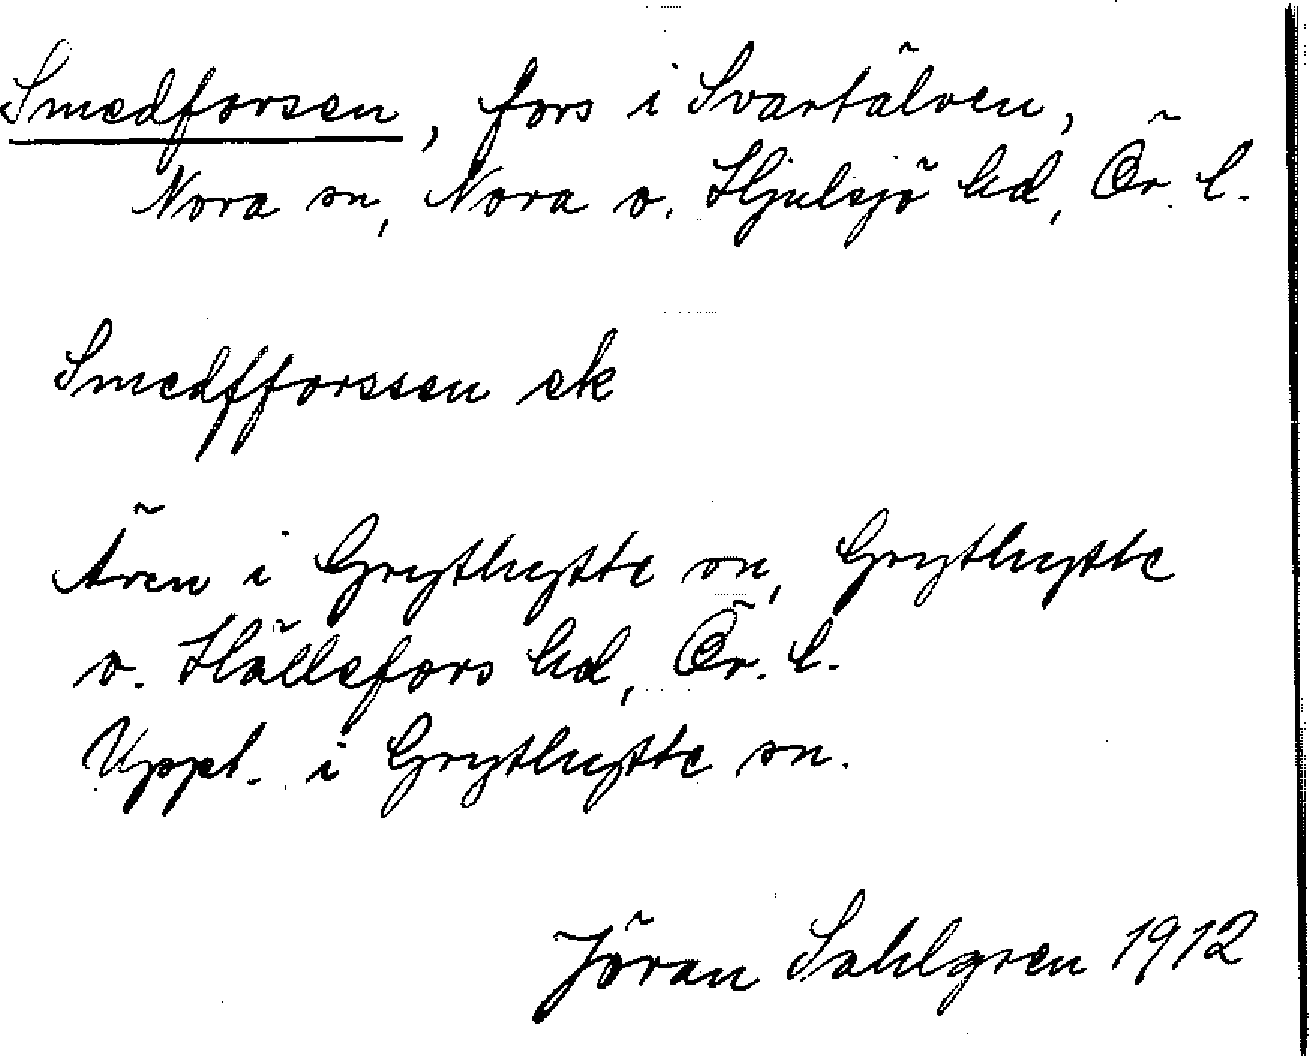 Smedforsen, fors i Svartälven,
Nora sn, Nora o. Hjulsjö hd, Ör. l.
Smedfforssen ek
Ären i Grythytte sn, Grythytte
o. Hällefors hd, Ör. l.
Uppt. i Grythytte sn.
Jöran Sahlgren 1912